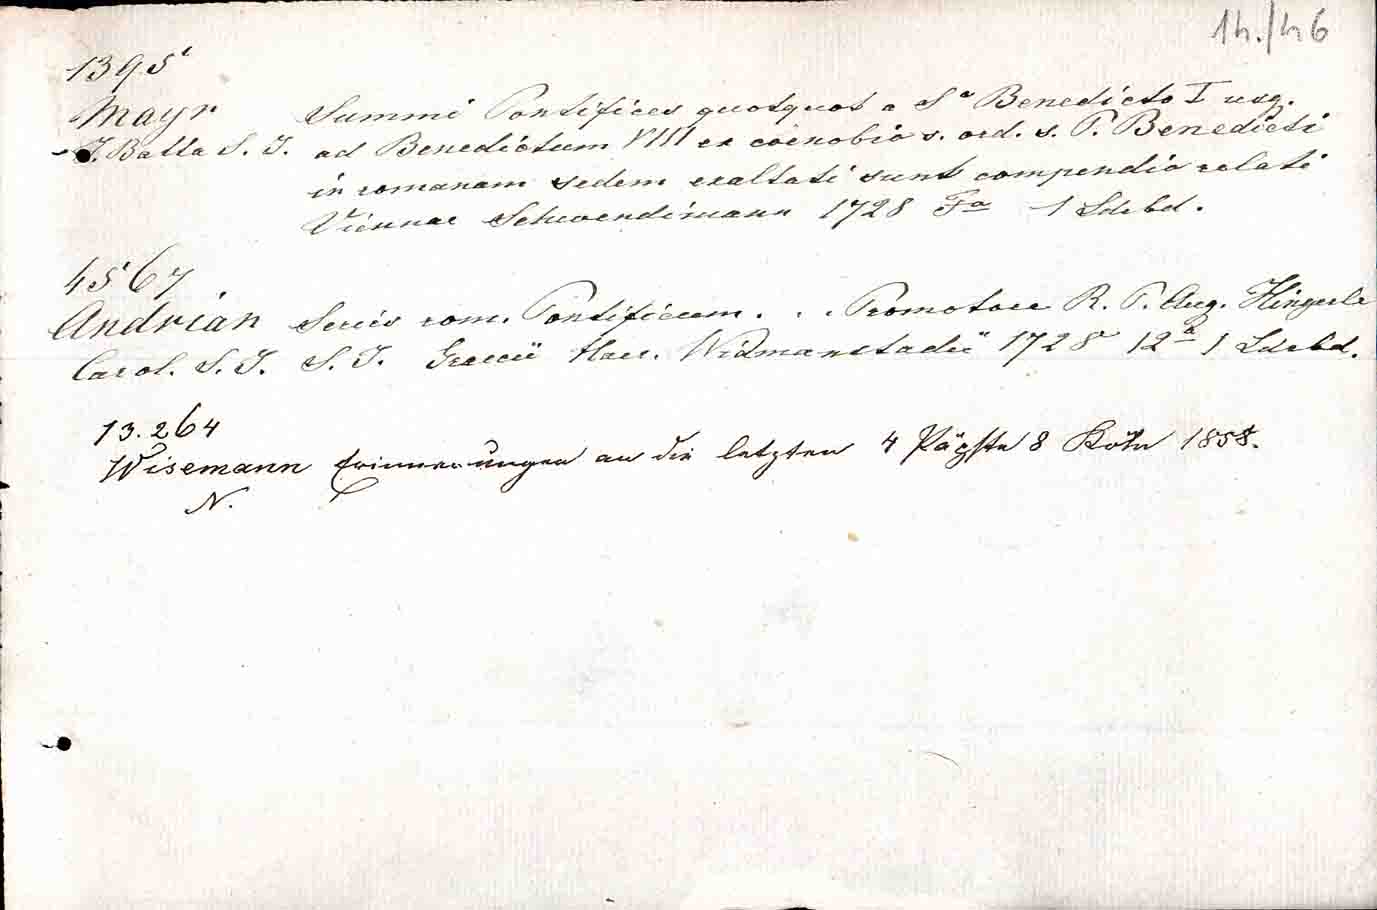 14./46
1395
Mayr Summi Pontifices quotquot a Sº Benedicto I usq.
J. Batta S. J. ad Benedictum VIII ex coenobio s. ord. s. P. Benedicti
in romanam sedem exaltati sunt compendio relati
Viennae Schwendimann 1728 Fº 1 Ldrbd.
4567
Andrian Series rom. Pontificum . . . Promotore R. P. Aug. Hingerle
Carol. S. J. S. J. Graecii Haer. Widmanstadii 1728 12º 1 Ldrbd.
13.264
Wisemann Erinnerungen an die letzten 4 Päpste 8 Köln 1858.
N.